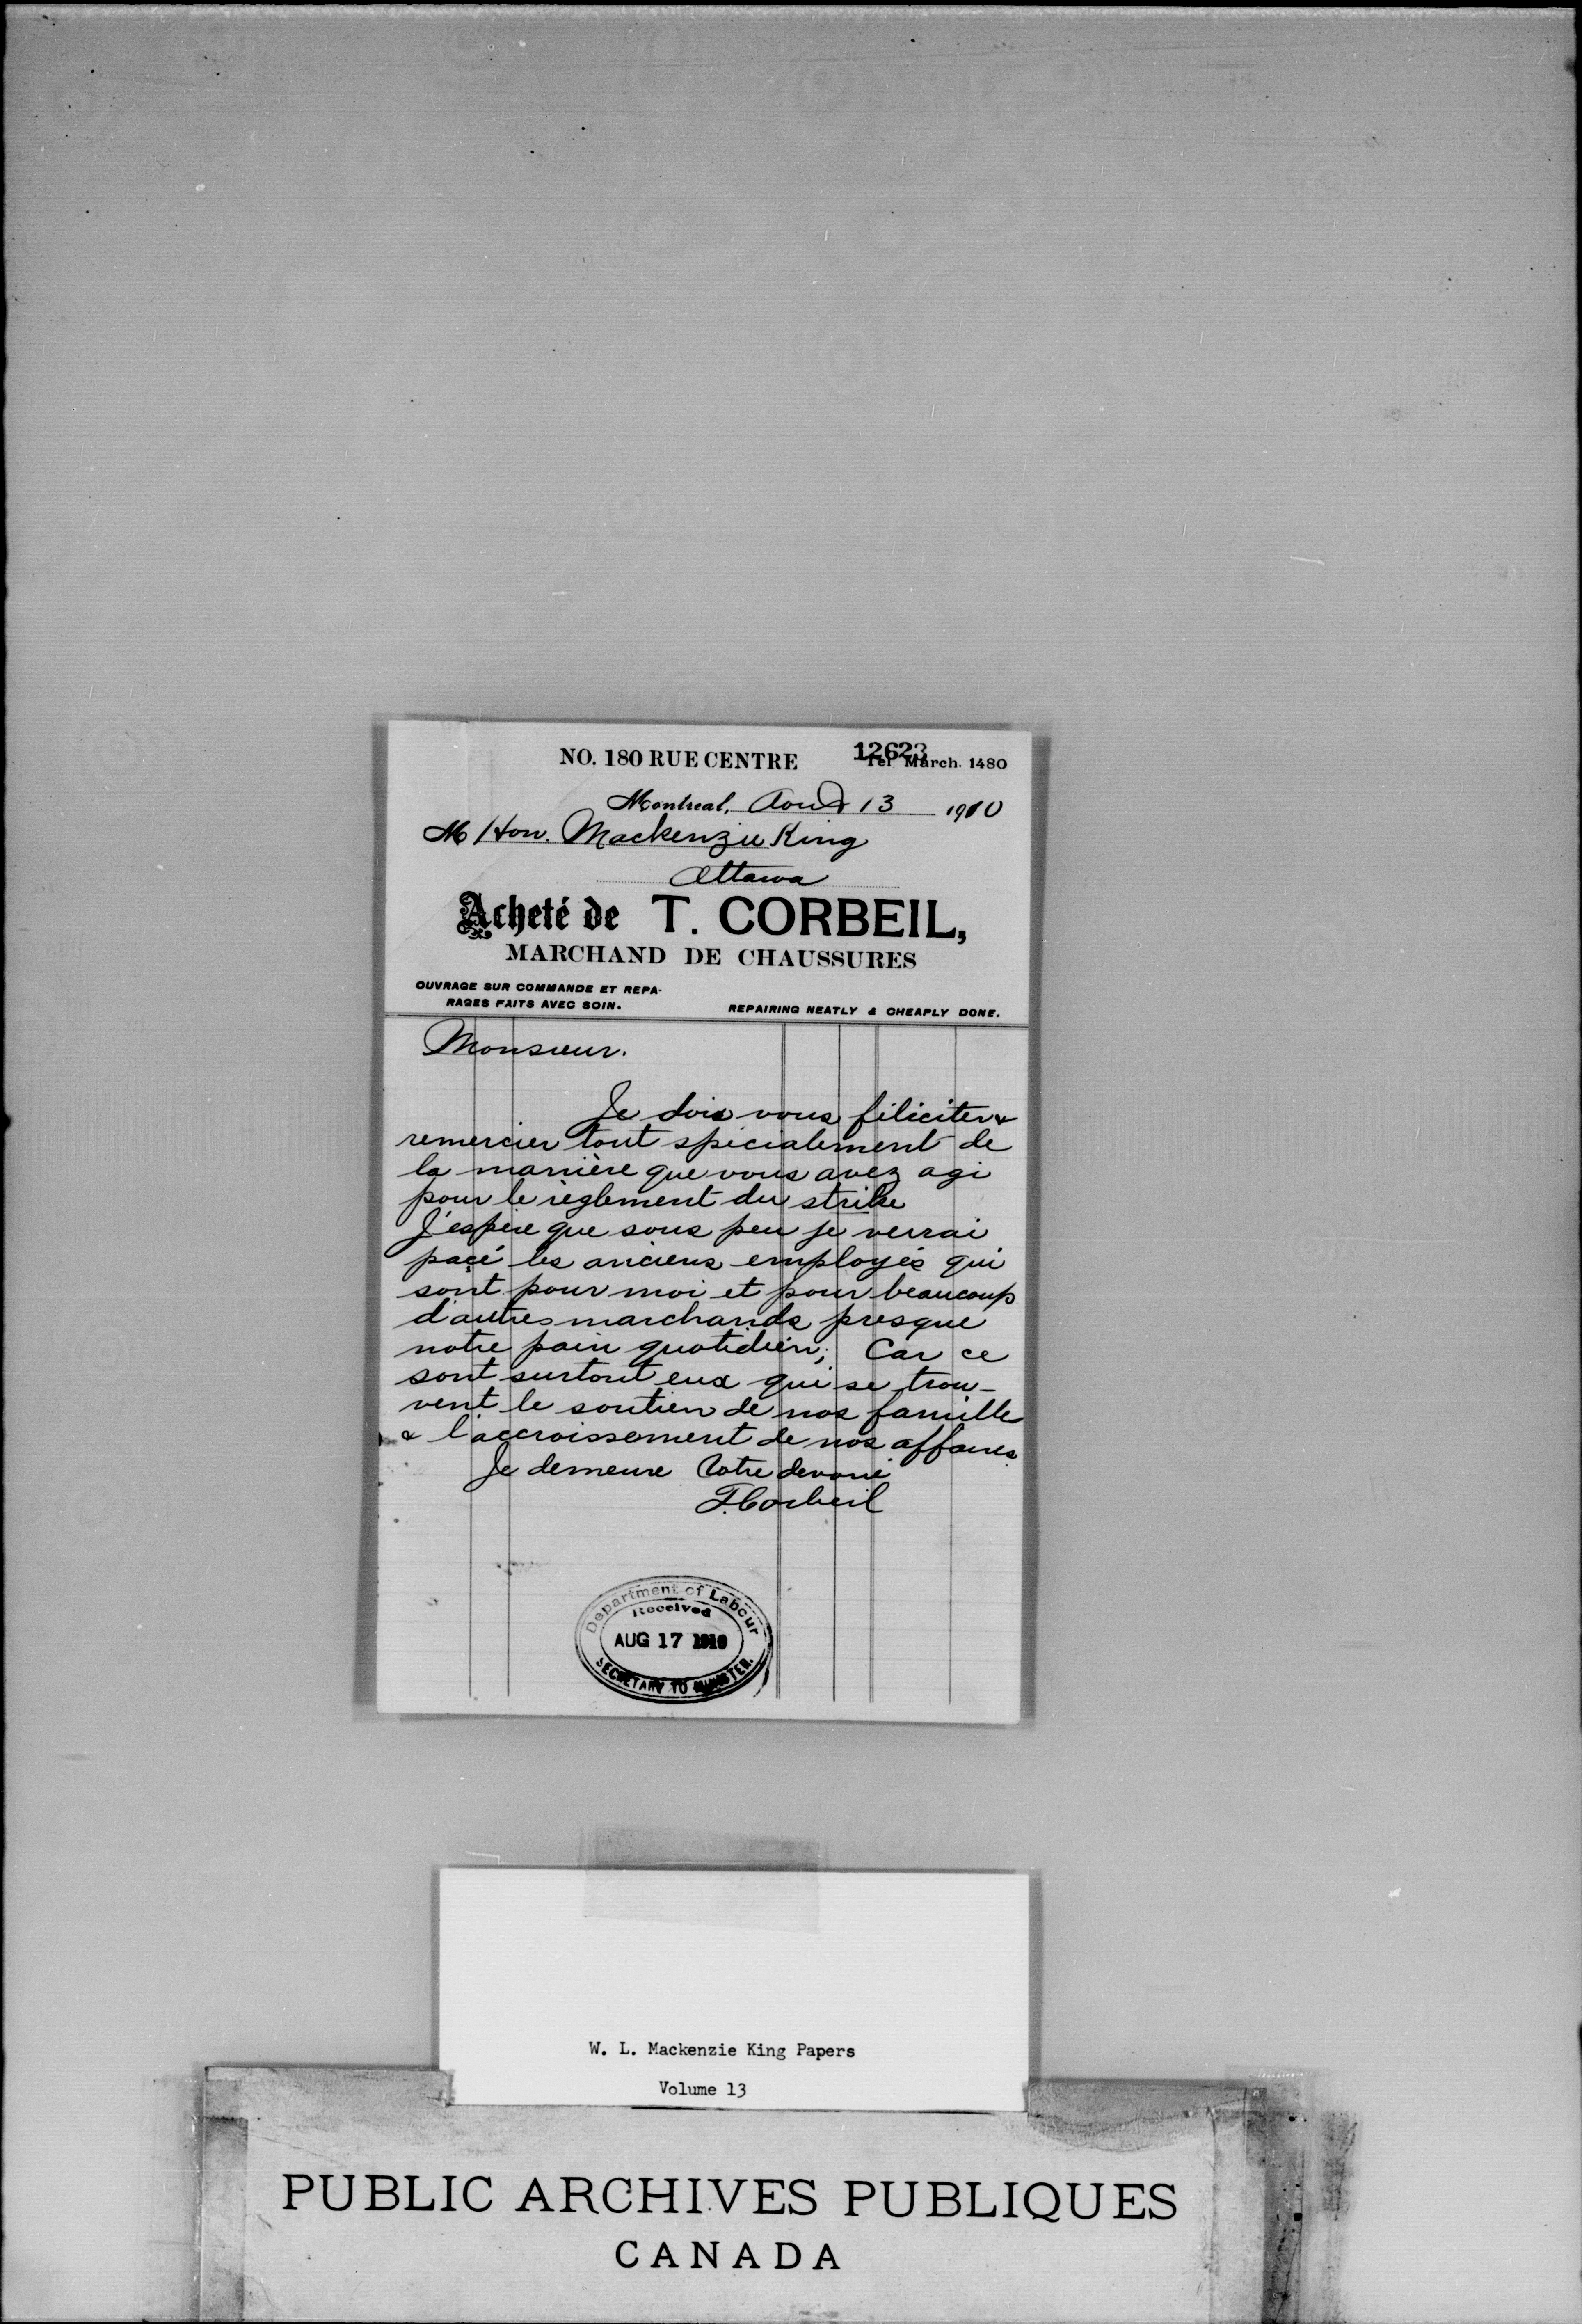 NO. 180 RUE CENTRE
12623
Tel. March. 1480
Montreal, Aout 13 1910
M Hon. Mackenzie King
Ottawa
Acheté de T. CORBEIL,
MARCHAND DE CHAUSSURES
OUVRAGE SUR COMMANDE ET REPA-
RAGES FAITS AVEC SOIN.
REPAIRING NEATLY & CHEAPLY DONE.
Monsieur.
Je dois vous féliciter &
remercier tout spécialement de
la manière que vous avez agi
pour le règlement du strike
J'espère que sous peu je verrai
paçé les anciens employés qui
sont pour moi et pour beaucoup
d'autres marchands presque
notre pain quotidien; Car ce
sont surtout eux qui se trou-
vent le soutien de nos famille
& l'accroissement de nos affaires
Je demeure Votre devoué
T. Corbeil
Department of Labour
Received
AUG 17 1910
SECRETARY TO MINISTER.
W. L. Mackenzie King Papers
Volume 13
PUBLIC ARCHIVES PUBLIQUES
CANADA